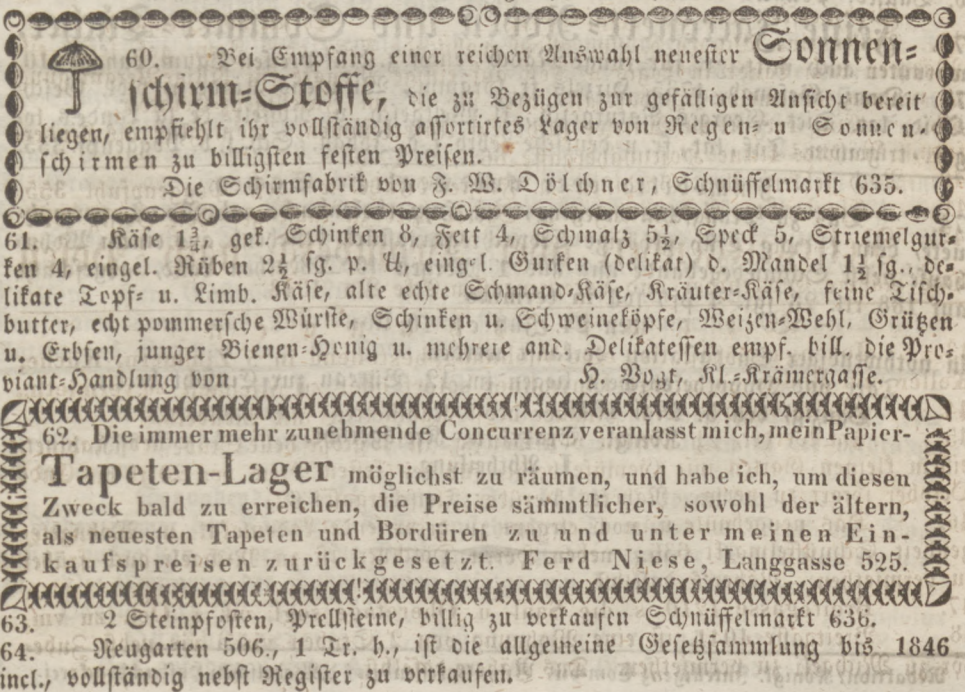 60. Bei Empfang einer reichen Auswahl neuester Sonnen=
schirm=Stoffe, die zu Bezügen zur gefälligen Ansicht bereit
liegen, empfiehlt ihr vollständig assortirtes Lager von Regen= u Sonnen=
schirmen zu billigsten festen Preisen.
Die Schirmfabrik von F. W. Dölchner, Schnüffelmarkt 635.
61. Käse 1¾, gek. Schinken 8, Fett 4, Schmalz 5½, Speck 5, Striemelgur=
ken 4, eingel. Rüben 2½ sg. p. ℔, eingel. Gurken (delikat) d. Mandel 1½ sg., de=
likate Topf= u. Limb. Käse, alte echte Schmand=Käse, Kräuter=Käse, feine Tisch=
butter, echt pommersche Würste, Schinken u. Schweineköpfe, Weizen=Mehl, Grützen
u. Erbsen, junger Bienen=Honig u. mehrere and. Delikatessen empf. bill. die Pro=
viant=Handlung von H. Vogt, Kl.=Krämergasse.
62. Die immer mehr zunehmende Concurrenz veranlasst mich, mein Papier-
Tapeten-Lager möglichst zu räumen, und habe ich, um diesen
Zweck bald zu erreichen, die Preise sämmtlicher, sowohl der ältern,
als neuesten Tapeten und Bordüren zu und unter meinen Ein-
kaufspreisen zurückgesetzt. Ferd Niese, Langgasse 525.
63. 2 Steinpfosten, Prellsteine, billig zu verkaufen Schnüffelmarkt 636.
64. Neugarten 506., 1 Tr. h., ist die allgemeine Gesetzsammlung bis 1846
incl., vollständig nebst Register zu verkaufen.